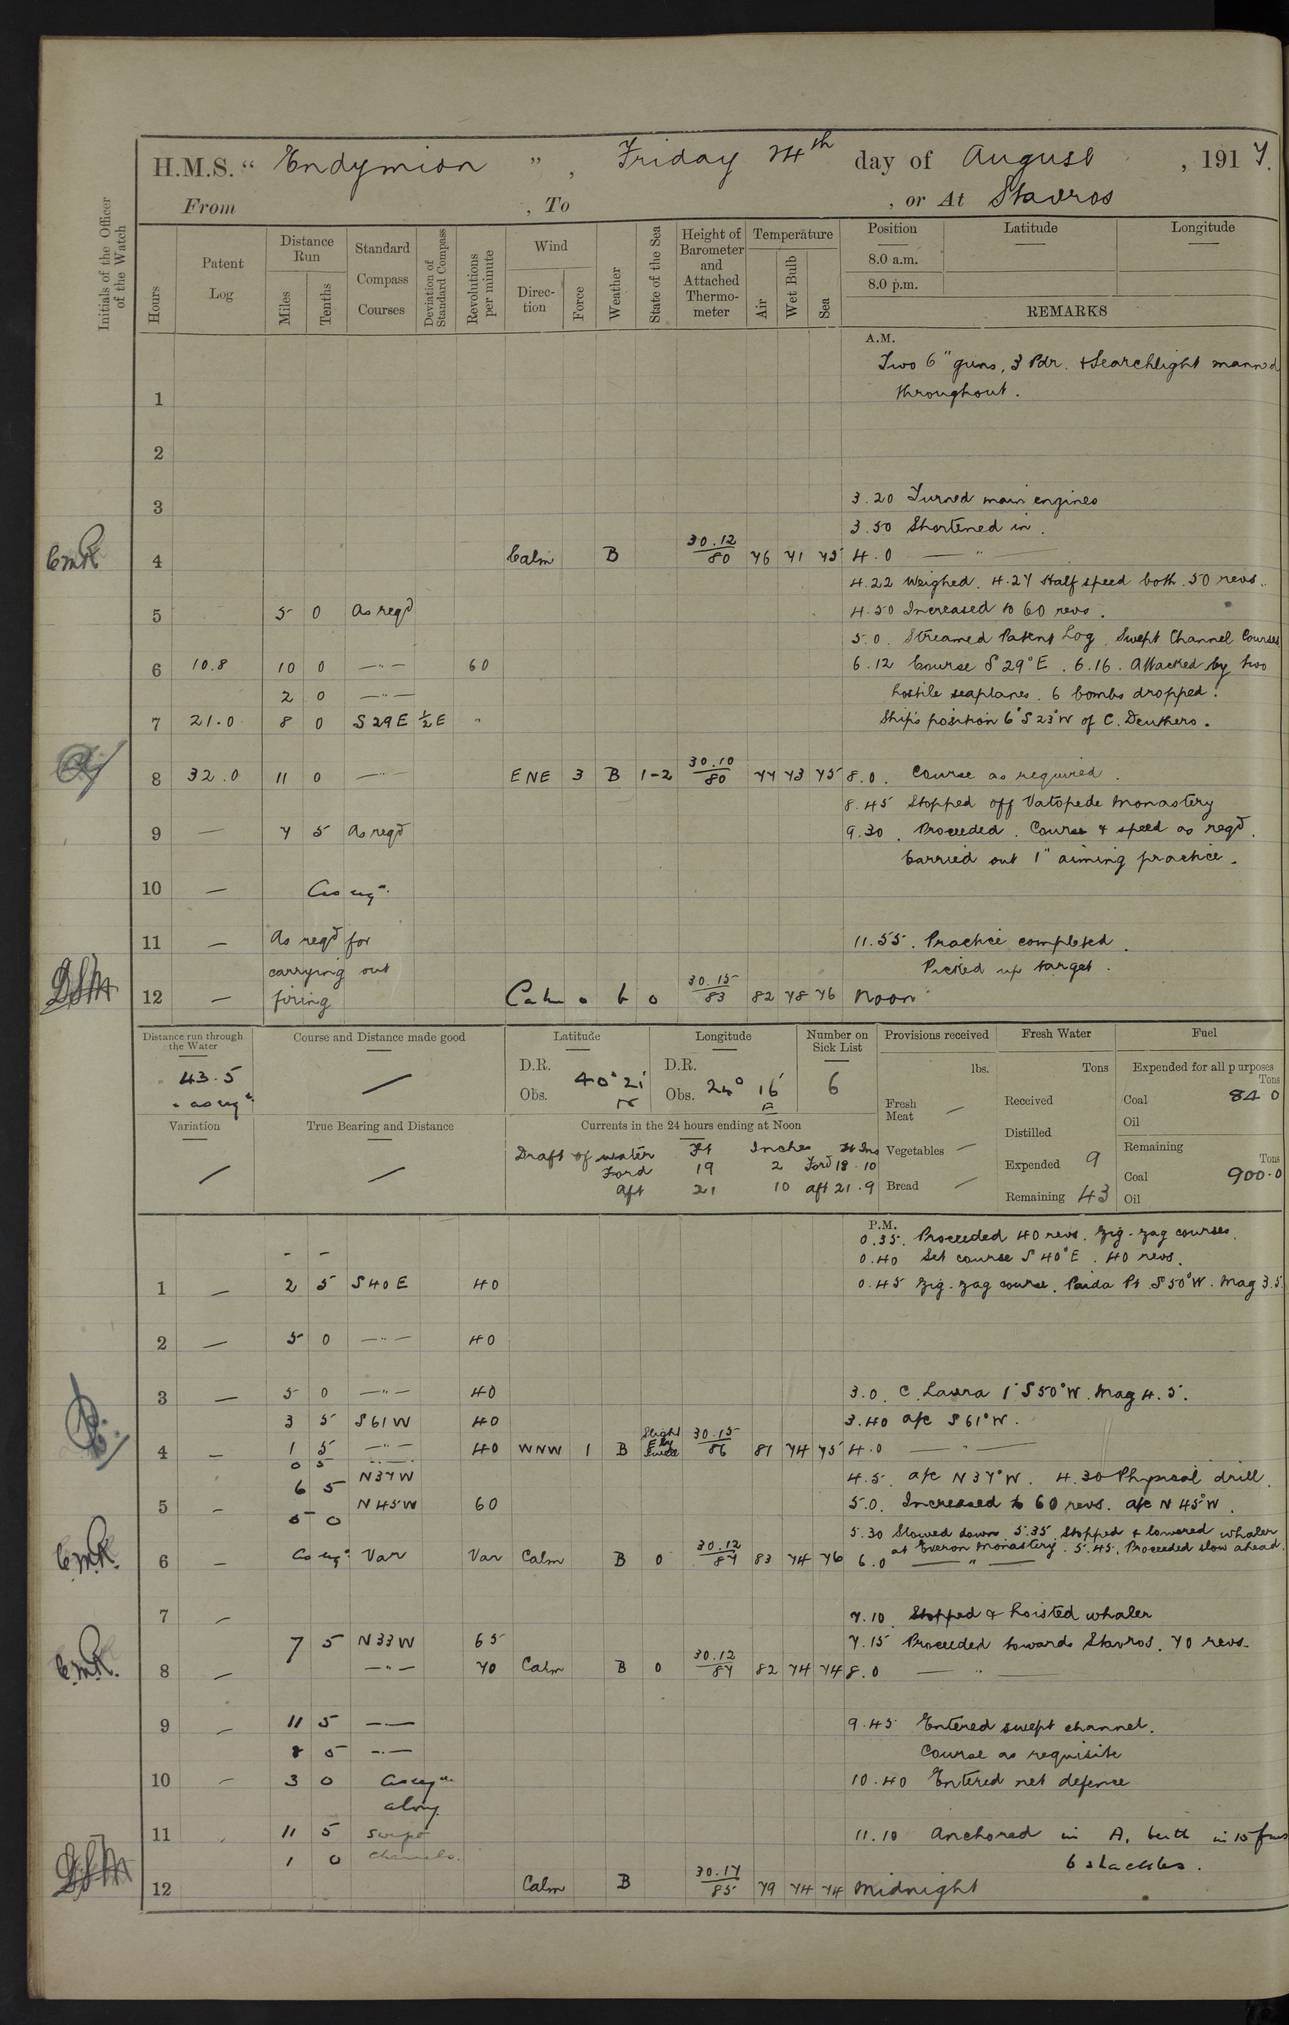 H.M.S. " Endymion ", Friday 24th day of August, 1917.
From , To , or At Stavros
Initials of the Officer of the Watch
Hours
Patent Log
Distance Run
Miles
Tenths
Standard Compass Courses
Deviation of Standard Compass
Revolutions per minute
Wind
Direction
Force
Weather
State of the Sea
Height of Barometer and Attached Thermometer
Temperature
Air
Wet Bulb
Sea
Position
Latitude
Longitude
8.0 a.m.
8.0 p.m.
REMARKS
A.M.
Two 6" guns, 3 Pdr. & Searchlight manned
1 throughout.
2
3 3.20 Turned main engines
3.50 Shortened in.
4 Calm B 30.12/80 76 71 75 4.0 — " —
4.22 Weighed. 4.27 Half speed both. 50 revs.
5 5 0 As reqd 4.50 Increased to 60 revs.
5.0. Streamed Patent Log. Swept Channel Courses
6 10.8 10 0 —"— 60 6.12 Course S 29° E. 6.16. Attacked by two
2 0 —"— hostile seaplanes. 6 bombs dropped.
7 21.0 8 0 S 29 E ½ E " Ships position 6' S 23° W of C. Deuthero.
8 32.0 11 0 —"— ENE 3 B 1-2 30.10/80 77 73 75 8.0. Course as required.
8.45 Stopped off Vatopede Monastery
9 — 7 5 As reqd 9.30. Proceeded. Course & speed as reqd.
Carried out 1" aiming practice.
10 — As reqd
11 — As reqd for 11.55. Practice completed.
carrying out Picked up target.
12 — firing Calm 0 b 0 30.15/83 82 78 76 Noon
Distance run through the Water
43.5
+ as reqd
Course and Distance made good
—
Latitude
D.R.
Obs. 40° 21' N
Longitude
D.R.
Obs. 24° 16' E
Number on Sick List
6
Provisions received
lbs.
Fresh Meat —
Vegetables —
Bread —
Fresh Water
Tons
Received
Distilled
Expended 9
Remaining 43
Fuel
Expended for all purposes
Tons
Coal 84 0
Oil
Remaining
Tons
Coal 900.0
Oil
Variation
—
True Bearing and Distance
—
Currents in the 24 hours ending at Noon
Draft of water Ft Inches Ft Ins
Ford 19 2 Ford 18 . 10
aft 21 10 aft 21 . 9
P.M.
- - 0.35. Proceeded 40 revs. Zig-zag courses.
0.40 Set course S 40° E. 40 revs.
1 — 2 5 S 40 E 40 0.45 Zig-zag course. Paida Pt S 50° W. Mag 3.5.
2 — 5 0 —"— 40
3 — 5 0 —"— 40 3.0. C. Laura 1' S 50° W. Mag 4.5.
3 5 S 61 W 40 3.40 a/c S 61° W.
4 — 1 5 —"— 40 WNW 1 B Slight E'ly Swell 30.15/86 81 74 75 4.0 — " —
0 5 —"—
6 5 N 37 W 4.5. a/c N 37° W. 4.30 Physical drill.
5 — N 45 W 60 5.0. Increased to 60 revs. a/c N 45° W.
5 0
5.30 Slowed down. 5.35. Stopped & lowered whaler
at Everon Monastery. 5.45. Proceeded slow ahead.
6 — As reqd Var Var Calm B 0 30.12/87 83 74 76 6.0 — " —
7 — 7.10. Stopped & hoisted whaler
7 5 N 33 W 65 7.15 Proceeded towards Stavros. 70 revs.
8 — —"— 70 Calm B 0 30.12/87 82 74 74 8.0 — " —
9 — 11 5 —"— 9.45 Entered swept channel.
8 5 —"— Course as requisite
10 — 3 0 As reqd 10.40 Entered net defence
along
11 11 5 swept 11.10 Anchored in A. berth in 15 fms
1 0 channels. 6 shackles.
12 Calm B 30.17/85 79 74 74 Midnight